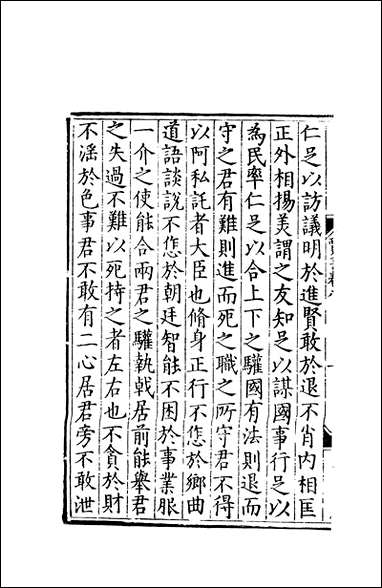 仁足以訪議明於進賢敢於退不肖内相匡
正外相揚美謂之友知足以謀國事行足以
為民率仁足以合上下之驩國有法則退而
守之君有難則進而死之職之所守君不得
以阿私託者大臣也脩身正行不怍於鄉曲
道語談說不怍於朝廷智能不困於事業服
一介之使能合兩君之驩執戟居前能舉君
之失過不難以死持之者左右也不貪於財
不滛於色事君不敢有二心居君旁不敢泄